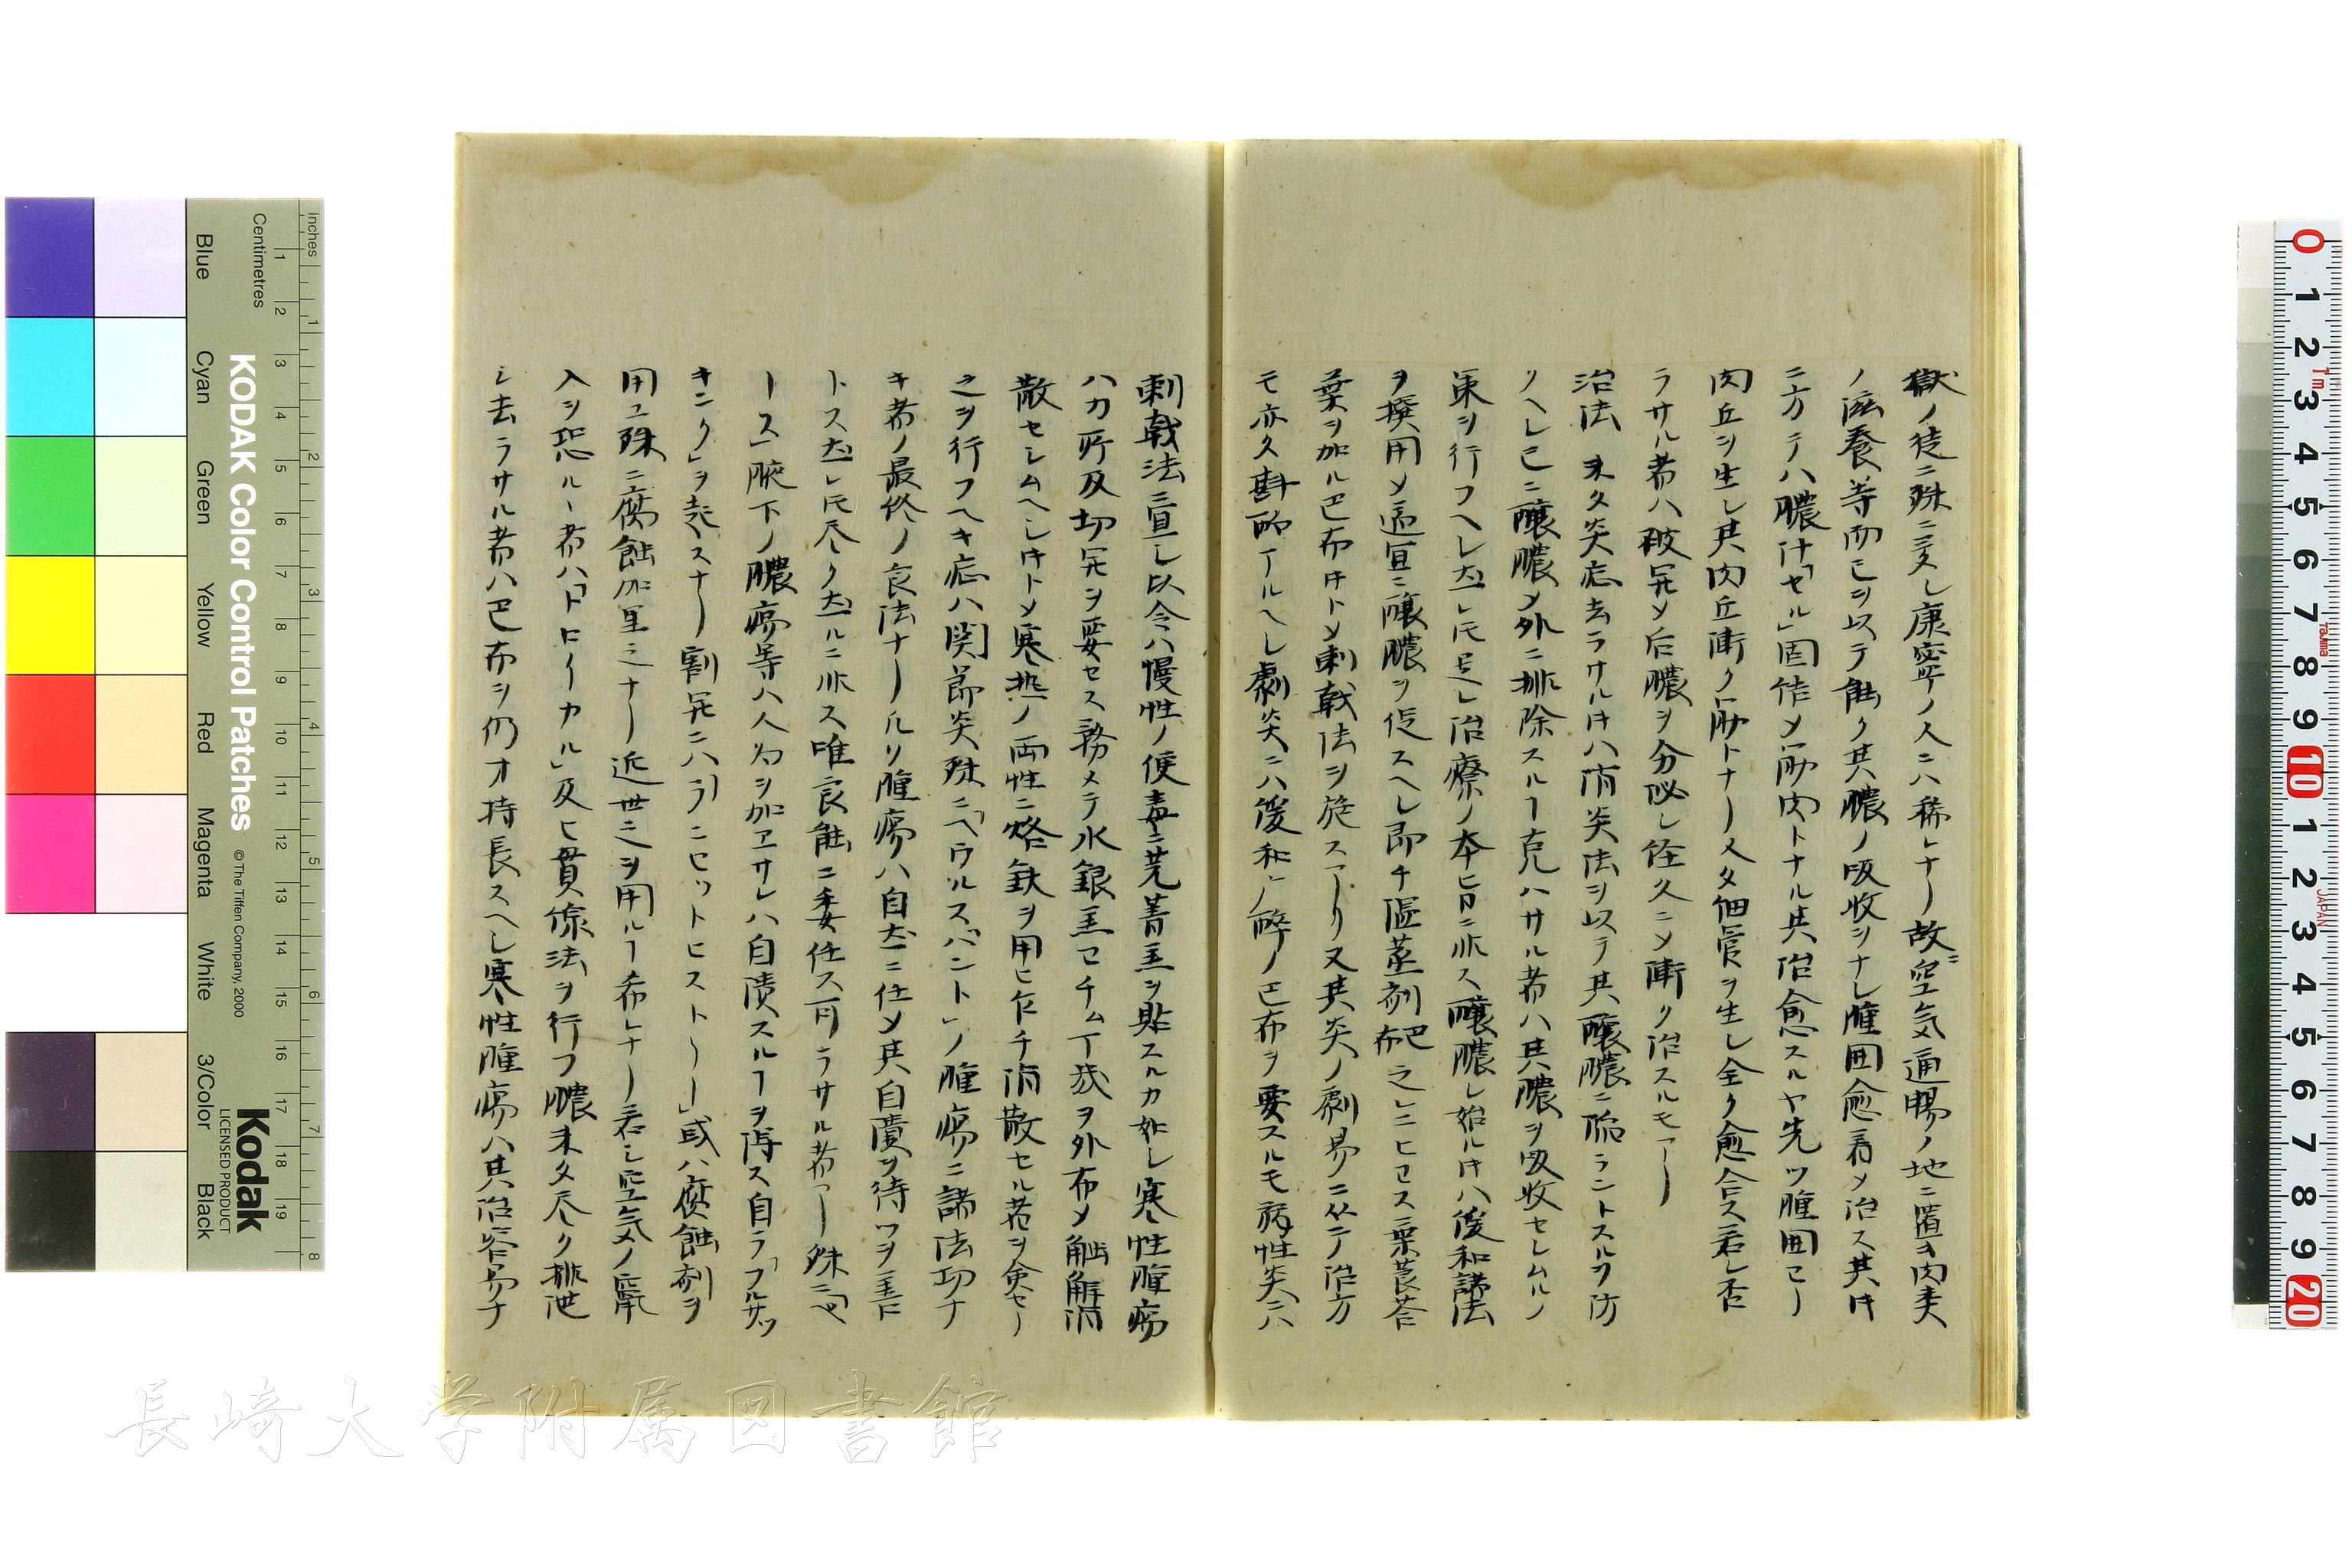 獄ノ徒ニ殊ニ多し康寧ノ人ニハ稀レナ故空気通暢ノ地ニ置キ肉羹
ノ滋養等而已ヲ以テ能ク其膿ノ吸收ヲナし腫囲愈着メ治ス其
ニ方テハ膿汁「セル」固作メ筋肉トナル其治愈スルヤ先ツ腫囲
肉丘ヲ生し其肉丘漸ク筋トナ又タ細管ヲ生し全ク愈合ス若し否
ラサル者ハ破開メ后膿ヲ分泌し経久ニメ漸ク治スルモ
治法 未タ炎症去ラサルハ消炎法ヲ以テ其醸膿ニ陥ラントスルヲ防
クヘし已ニ醸膿メ外ニ排除スル克ハサル者ハ其膿ヲ吸收セしムルノ
策ヲ行フヘし然レ是レ治療ノ本旨ニ非ス醸膿し始ルハ緩和諸法
ヲ撰用メ適宜ニ醸膿ヲ促スヘし即チ温蒸剤巴布之レニヒヨス葉莨菪
葉ヲ加ル巴布トメ刺戟法ヲ施ス又其炎ノ劇易ニ従テ治方
モ亦タ斟酌アルヘし劇炎ニハ緩和ノ巴布ヲ要スルモ病性炎ニハ
刺戟法ニ宜し以今ハ慢性ノ便毒ニ芫菁ヲ貼スルカ如し寒性腫瘍
ハ刀所及切開ヲ要セス務メテ水銀ヨチムヲ外布メ觧消
散セしムヘしトメ寒熱ノ両性ニ烙鉄ヲ用ヒ乍チ消散セル者ヲ
之ヲ行フヘキ症ハ関節炎殊ニ「ヘウルスパント」ノ腫瘍ニ諸法功ナ
キ者ノ最終ノ良法ナルリ腫瘍ハ自然ニ任メ其自潰ヲ待ツヲ善
トス然レ尽ク然ルニ非ス唯良能ニ委任ス可ラサル者殊ニ
ス」腋下ノ膿瘍等ハ人為ヲ加ヱサレハ自潰スルヲ得ス自ラ「フルサッ
キンク」ヲ起スナ割開ニハ「ラニセットヒストー」或ハ腐蝕剤ヲ
用ユ殊ニ腐蝕加里ナ近世之ヲ用ル希レナ若し空気ノ竄
入ヲ恐ル者ハ「トロイカル」及ヒ貫線法ヲ行フ膿未タ尽ク排泄
し去ラサル者ハ巴布ヲ仍オ持長スヘし寒性腫瘍ハ其治容易ナ
Inches
Centimetres
KODAK Color Control Patches
© The Tiffen Company, 2000
Kodak
LICENSED PRODUCT
Blue
Cyan
Green
Yellow
Red
Magenta
White
3/Color
Black
長崎大学附属図書館